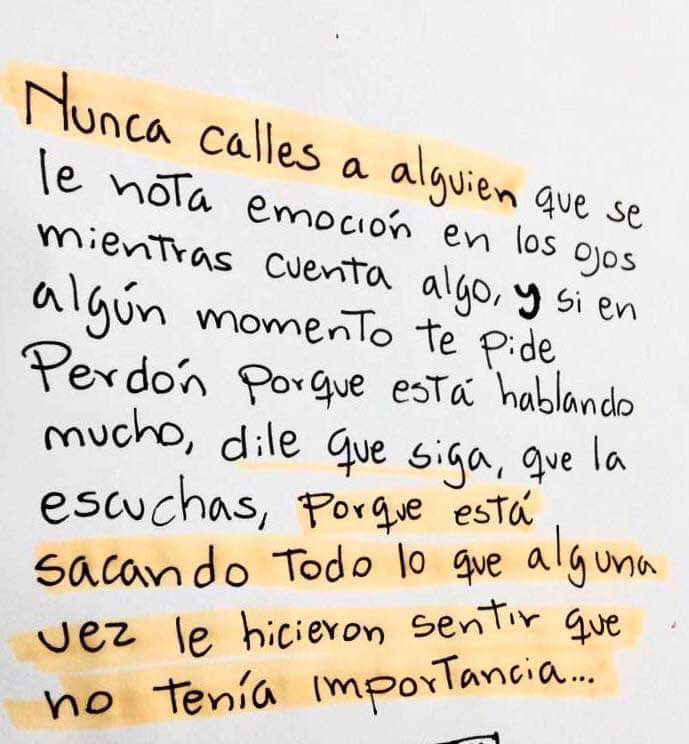 Nunca calles a alguien que se
le nota emoción en los ojos
mientras cuenta algo, y si en
algún momento te pide
Perdón porque está hablando
mucho, dile que siga, que la
escuchas, porque está
sacando todo lo que alguna
vez le hicieron sentir que
no tenía importancia...